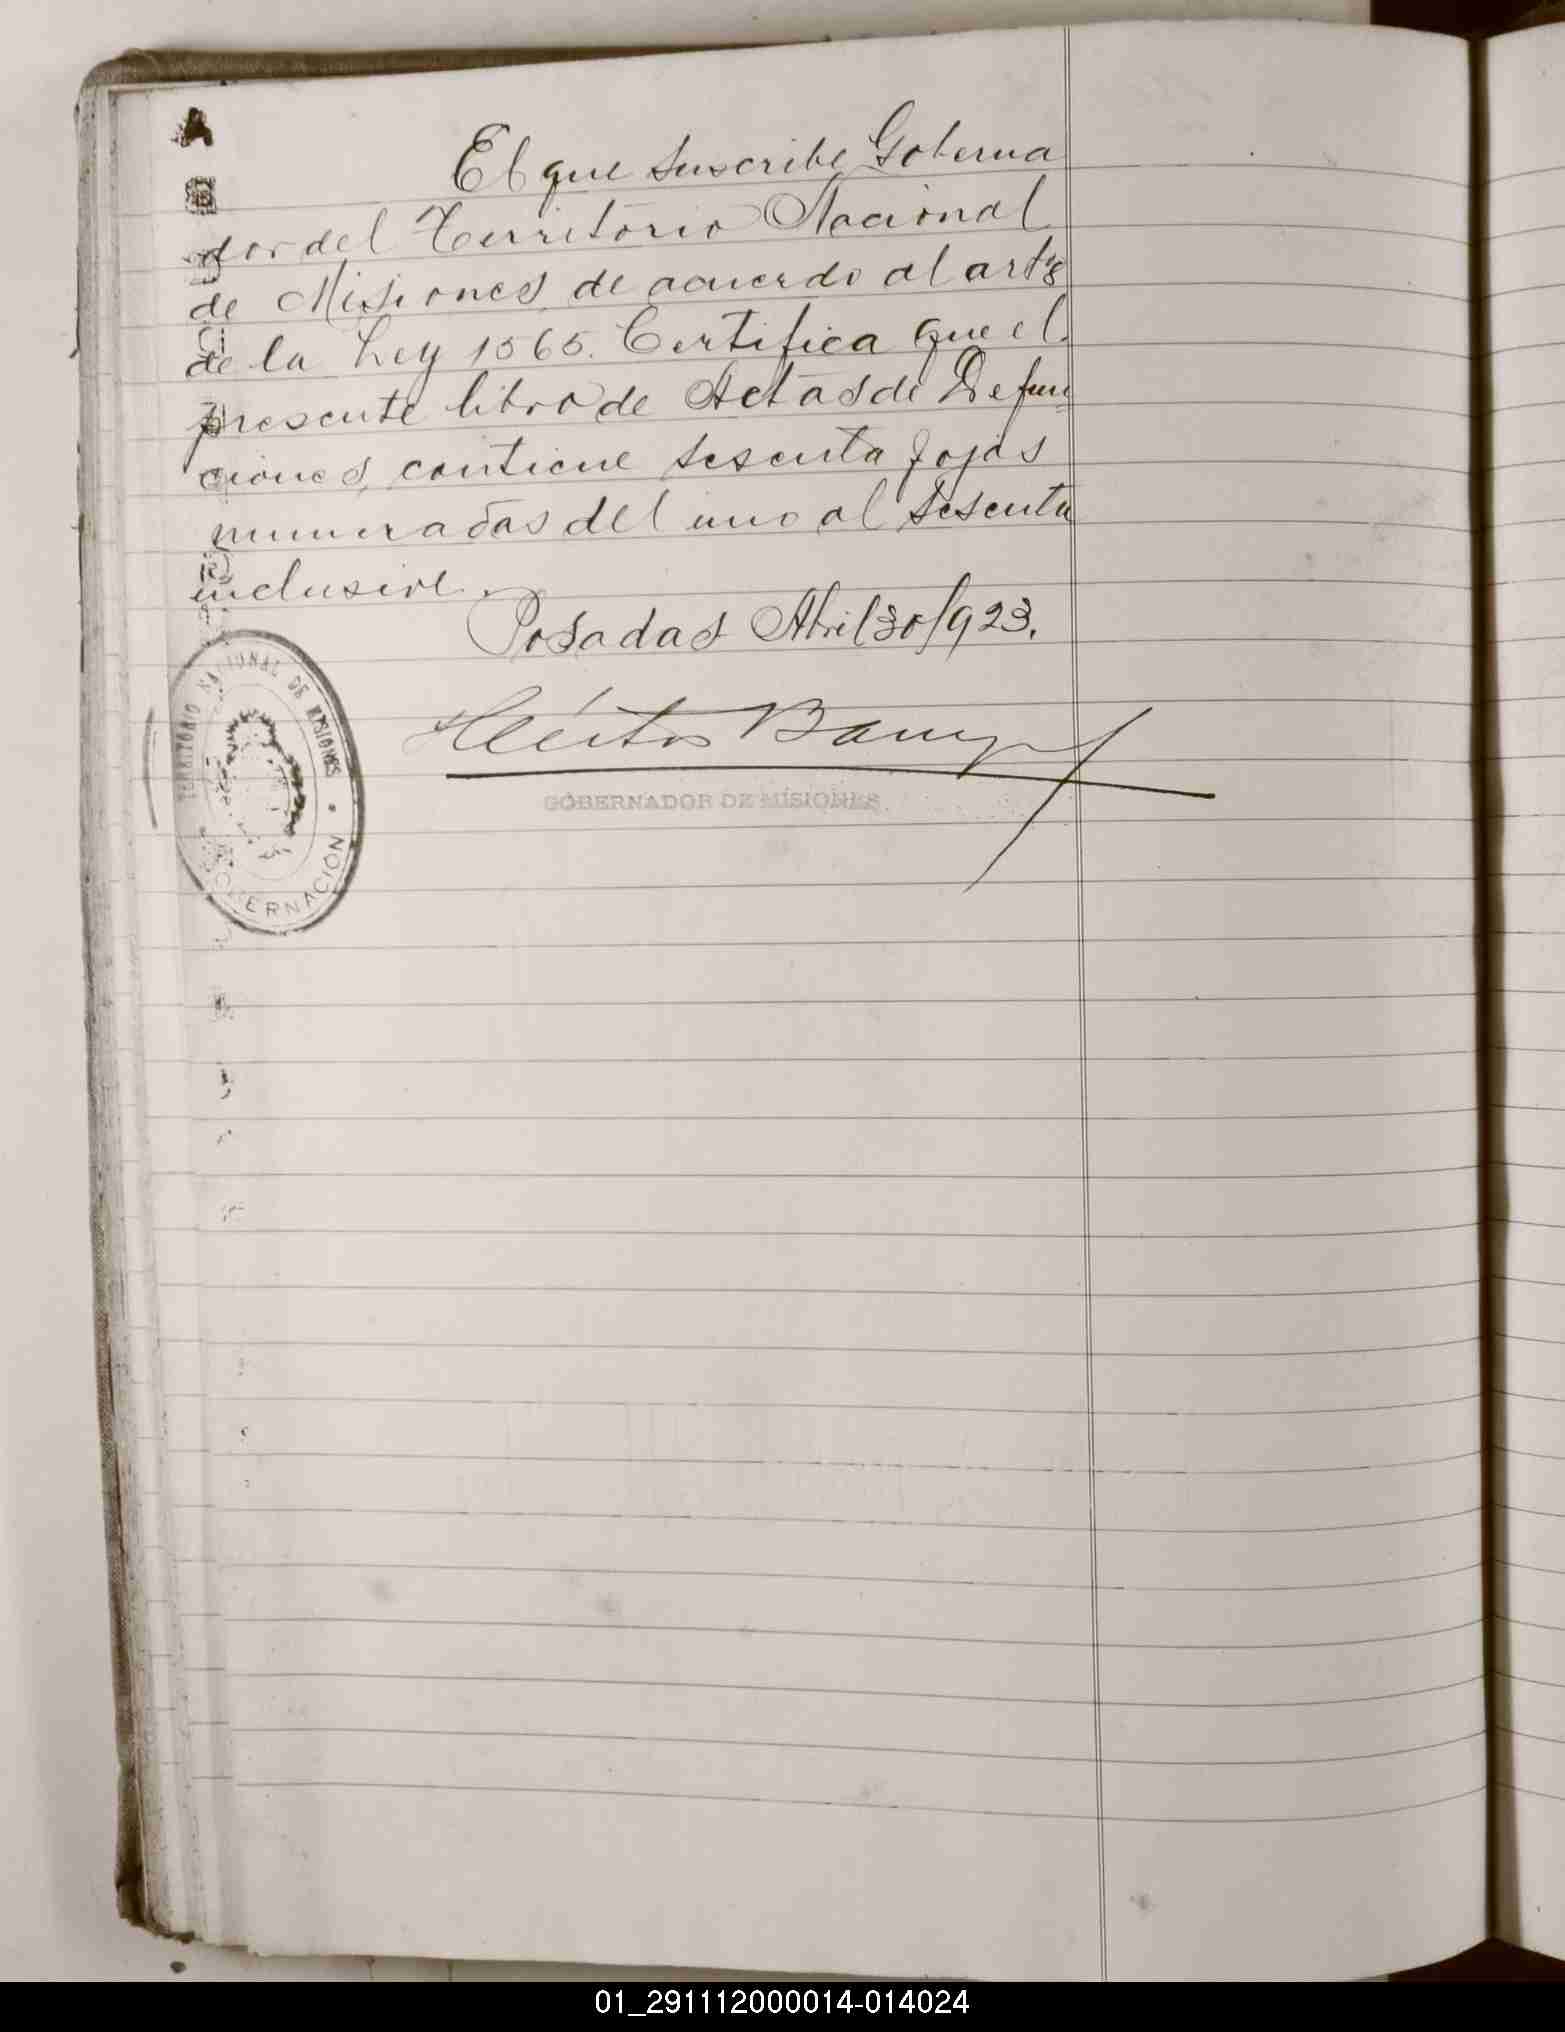 El que suscribe Goberna
dor del Territorio Nacional
de Misiones, de acuerdo al art 8
de la Ley 1565. Certifica que el
presente libro de Actas de Defun
ciones, contiene sesenta fojas
numeradas del uno al sesenta
inclusive.
Posadas Abril 30/923.
Héctor Barreyro
GOBERNADOR DE MISIONES
TERRITORIO NACIONAL DE MISIONES
GOBERNACION
01_291112000014-014024